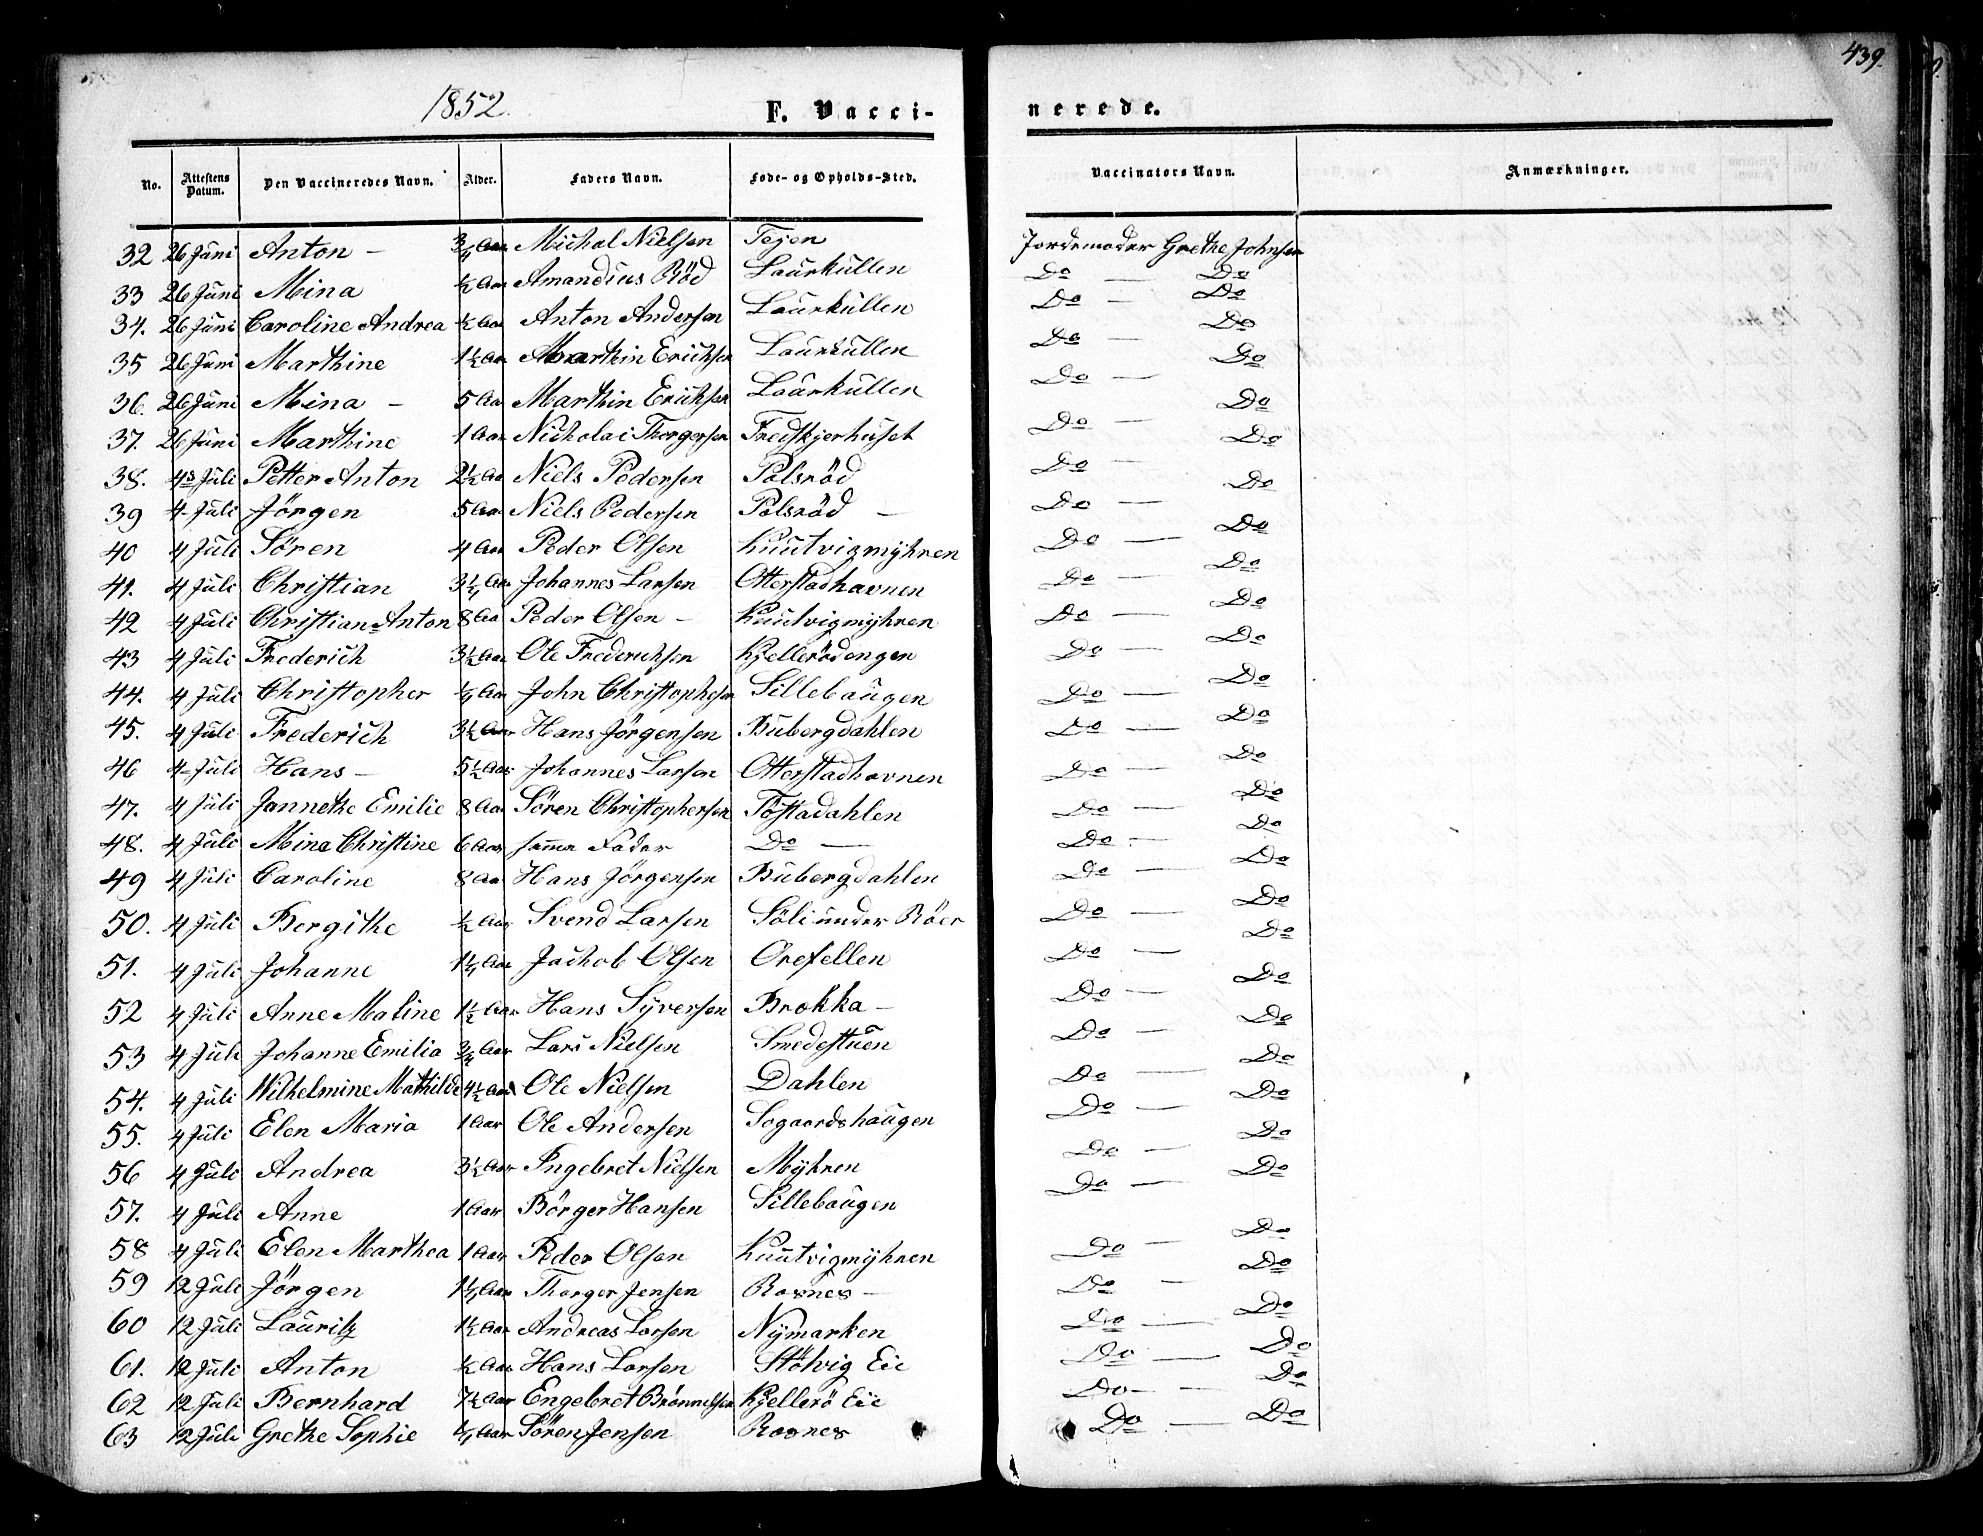 439.
1852.
F. Vaccinerede.
No. Attestens Datum. Den Vaccineredes Navn. Alder. Faders Navn. Føde- og Opholds-Sted. Vaccinators Navn. Anmærkninger.
32 26 Juni Anton - 3/4 Aar Michal Nielsen Tejen Jordemoder Grethe Johnsen
33 26 Juni Mina 1/2 Aar Amandius Röd Laurkullen Do — Do
34. 26 Juni Caroline Andrea 1/2 Aar Anton Andersen Laurkullen Do — Do
35 26 Juni Marthine 1 1/2 Aar Marthin Erichsen Laurkullen Do — Do
36. 26 Juni Mina - 5 Aar Marthin Erichsen Laurkullen Do — Do
37. 26 Juni Marthine 1 Aar Nicholai Thorgersen Fredskjerhuset Do — Do
38. 4de Juli Petter Anton 2 1/2 Aar Niels Pedersen Polsröd Do — Do
39 4 Juli Jörgen 5 Aar Niels Pedersen Polsröd — Do — Do
40 4 Juli Sören 4 Aar Peder Olsen Kuutvigmyhren Do — Do
41. 4 Juli Christian 3 1/4 Aar Johannes Larsen Otterstadhavnen Do — Do
42 4 Juli Christian Anton 8 Aar Peder Olsen - Kuutvigmyhren Do — Do
43 4 Juli Frederich 3 1/2 Aar Ole Frederichsen Kjellerödengen Do — Do
44. 4 Juli Christopher 1/4 Aar John Christophersen Sillebaugen Do — Do
45. 4 Juli Frederich 3 1/2 Aar Hans Jörgensen Bubergdahlen Do — Do
46 4 Juli Hans - 5 1/2 Aar Johannes Larsen Otterstadhavnen Do — Do
47. 4 Juli Jannethe Emilie 8 Aar Sören Christophersen Tostadahlen Do — Do
48. 4 Juli Mina Christine 6 Aar samme Fader Do — Do — Do
49 4 Juli Caroline 8 Aar Hans Jörgensen Bubergdahlen Do — Do
50. 4 Juli Bergithe 1/2 Aar Svend Larsen Söli under Röer Do — Do
51. 4 Juli Johanne 1 1/4 Aar Jachob Olsen Orefellen Do — Do
52 4 Juli Anne Maline 1 1/2 Aar Hans Syversen Brokka - Do — Do
53 4 Juli Johanne Emilia 3/4 Aar Lars Nielsen Smedestuen Do — Do
54. 4 Juli Wilhelmine Mathilde 4 1/2 Aar Ole Nielsen Dahlen Do — Do
55. 4 Juli Elen Maria 1 Aar Ole Andersen Sogaardshaugen Do — Do
56 4 Juli Andrea 3 1/2 Aar Ingebret Nielsen Myhren Do — Do
57. 4 Juli Anne 1 Aar Börger Hansen Sillebaugen Do — Do
58 4 Juli Elen Marthea 1 Aar Peder Olsen Kuutvigmyhren Do — Do
59 12 Juli Jörgen 1 1/4 Aar Thorger Jensen Rosnes - Do — Do
60 12 Juli Lauritz 1 1/2 Aar Andreas Larsen Nymarken Do — Do
61. 12 Juli Anton 1/2 Aar Hans Larsen Stölvig Eie Do — Do
62 12 Juli Bernhard 7 1/2 Aar Engebret Kjellerö Eie Do — Do
63 12 Juli Grethe Sophie 1/4 Aar Sören Jensen Rosnes Do — Do